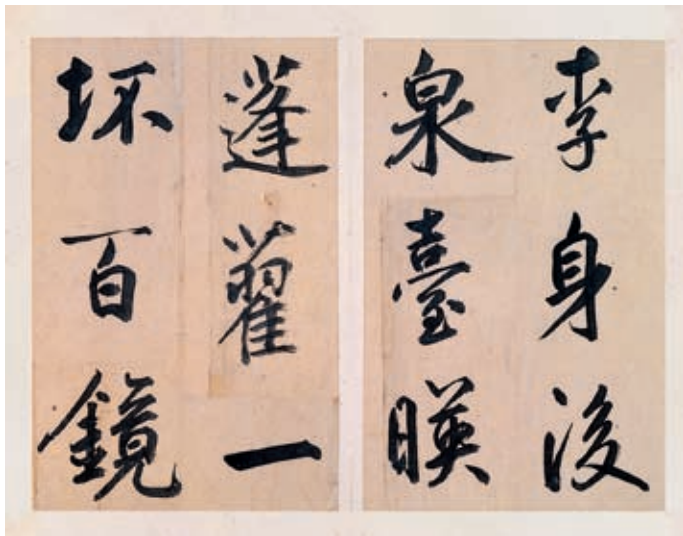 李身後
泉臺暎
蓬藋一
坏百鏡